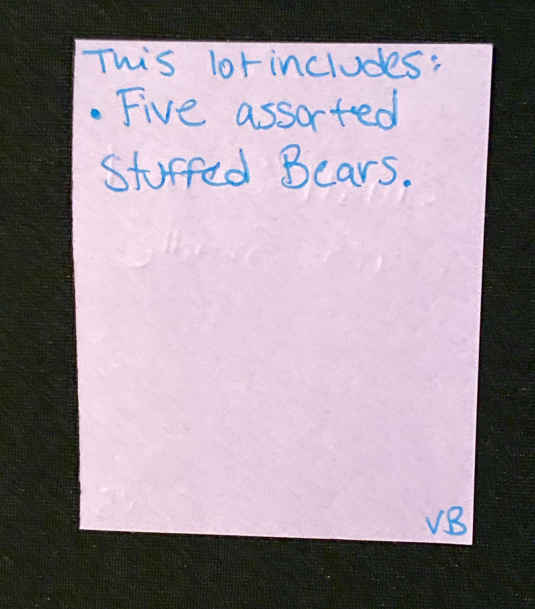 This lot includes:
• Five assorted
Stuffed Bears.
VB